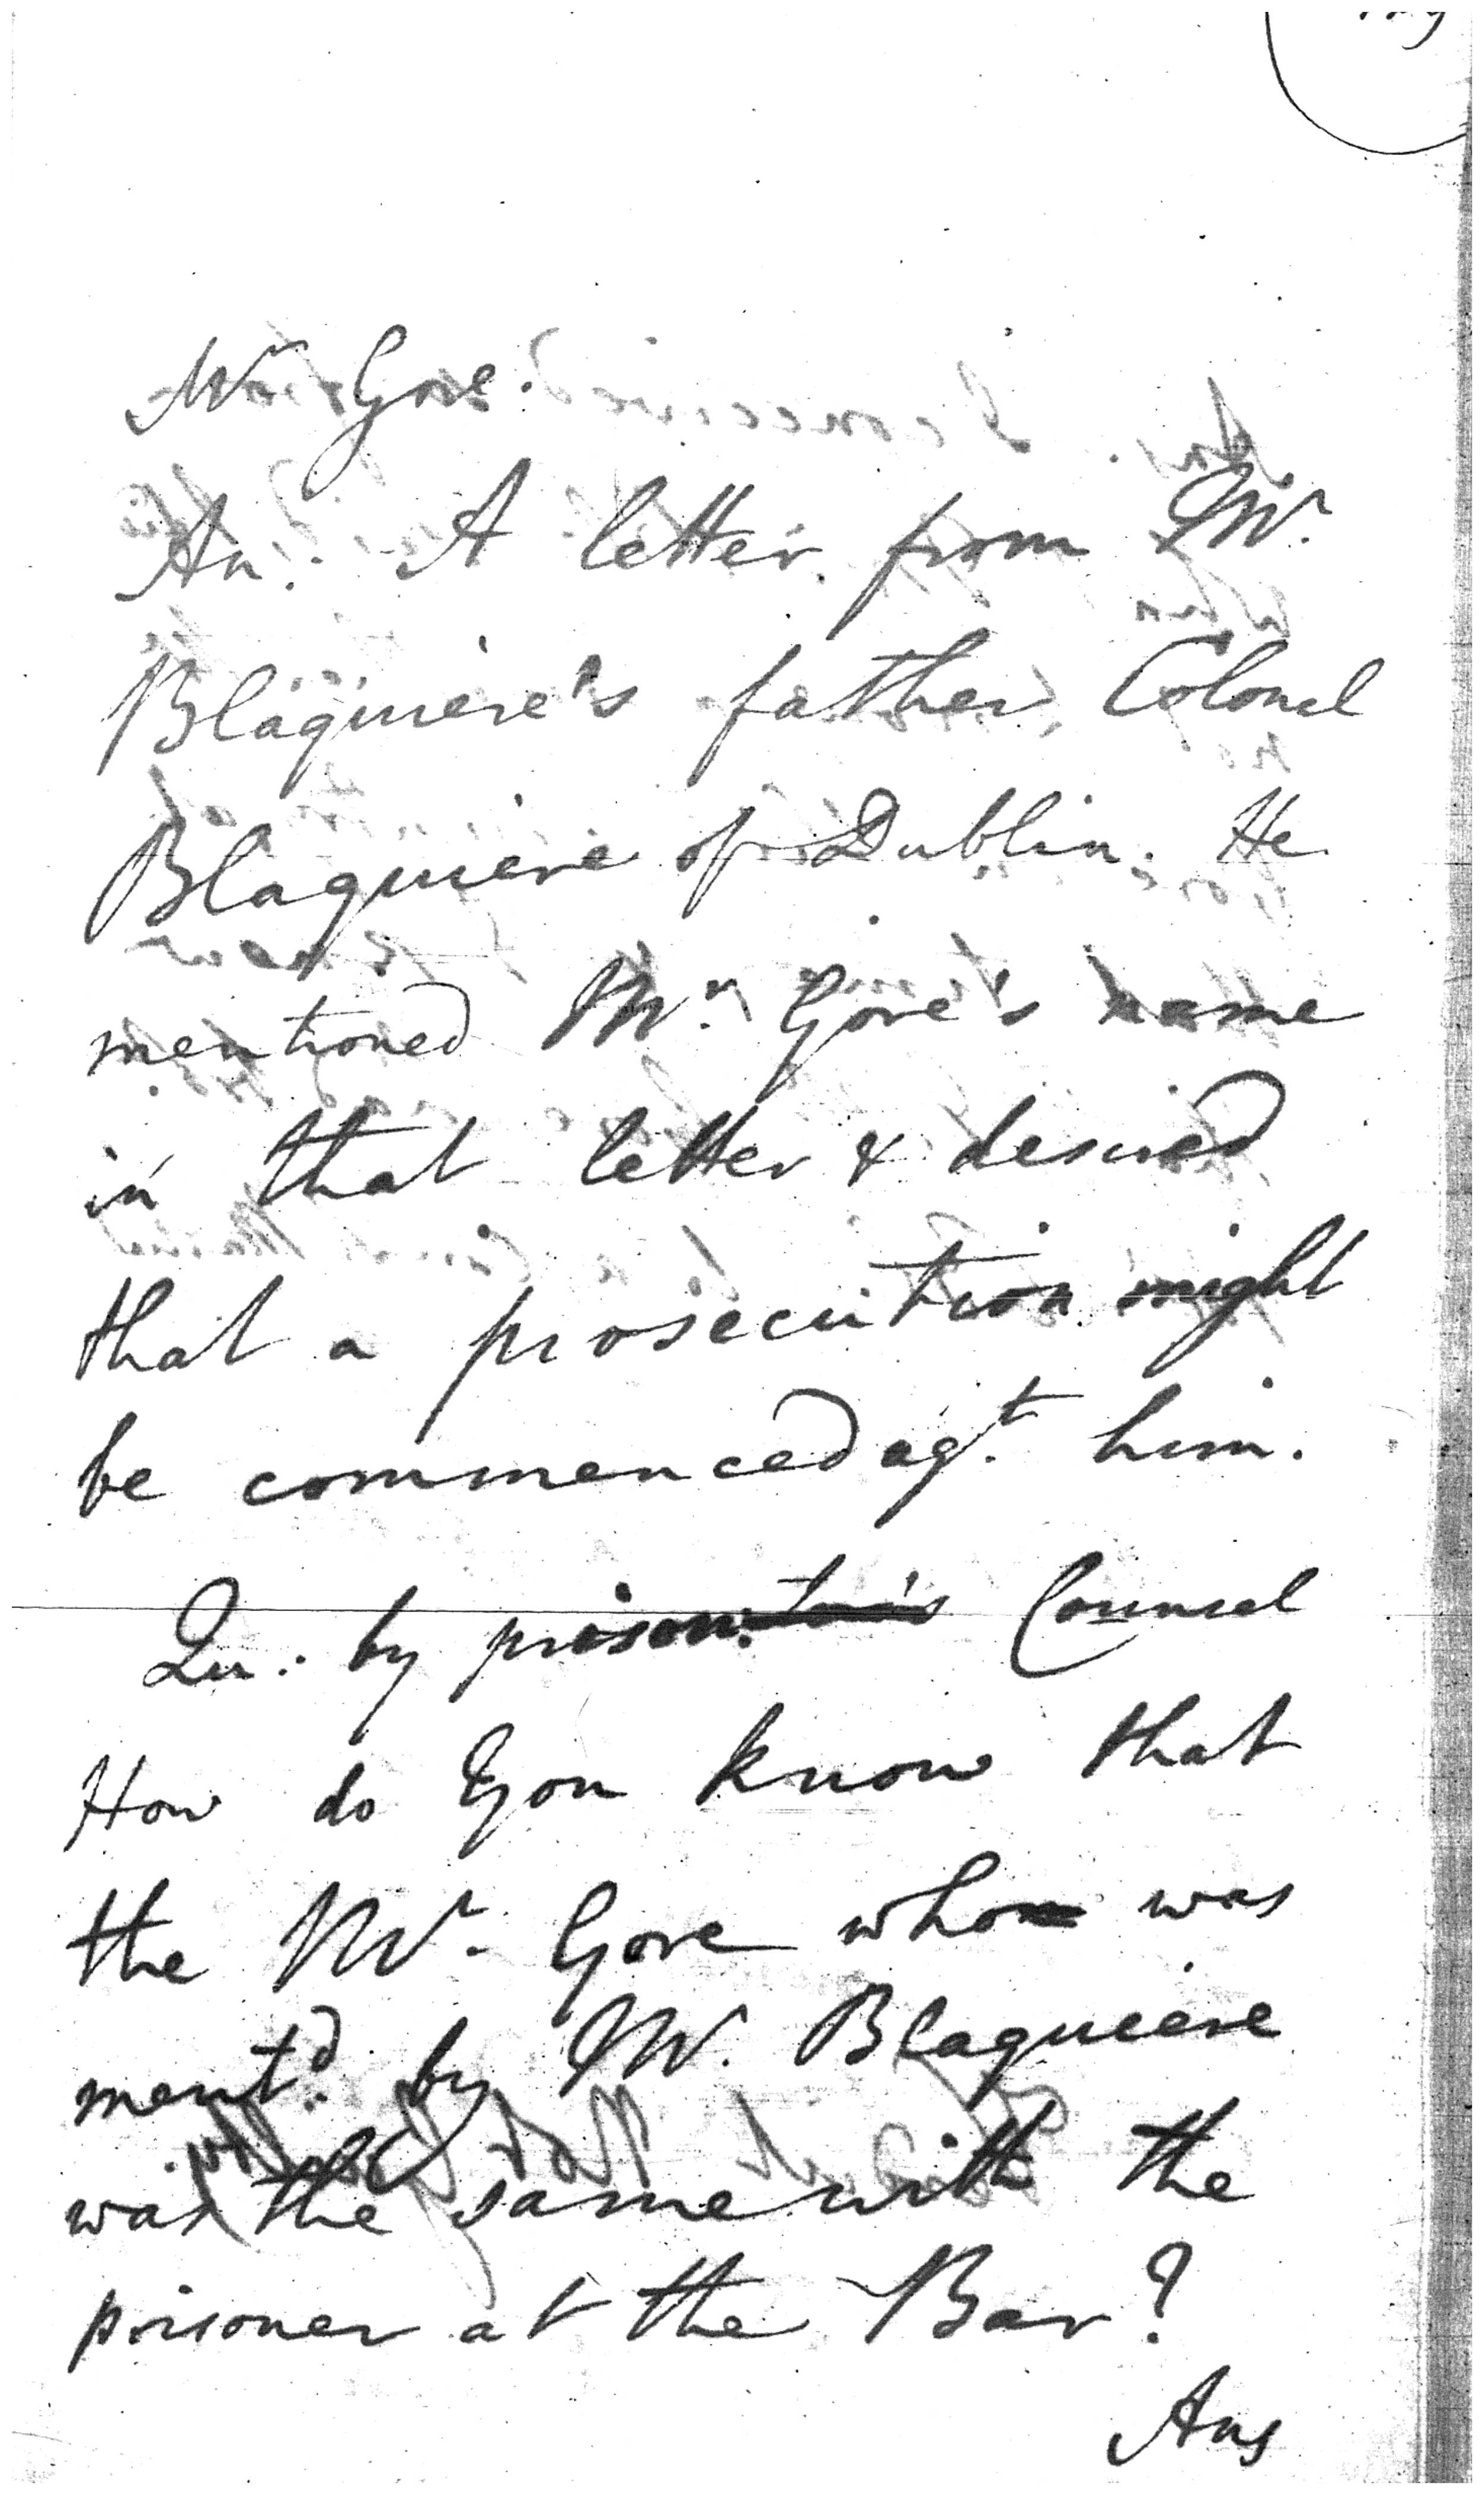 Mr Gore.
An. A letter from Mr.
Blaquiere's father Colonel
Blaquiere of Dublin. He
mentioned Mr. Gore's name
in that letter & desired
that a prosecution might
be commenced agt. him.
Qu. by prison: Counsel
How do you know that
the Mr. Gore who was
mentd. by Mr. Blaquiere
was the same with the
prisoner at the Bar?
Ans